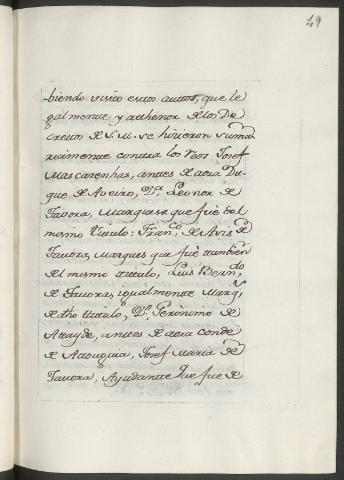 49
-biendo visto estos auttos, que le
galmente y atthenor de los De
crettos de S. M. se hicieron suma
riamente contra los reos Josef
Mascarenhas, antes de aora Du
que de Aveiro, D.ª Leonor de
Tavora, Marquesa que fuè del
mismo titulo: Fran.co de Asis de
Tavora, Marques que fuè tambien
del mismo titulo, Luis Bern.do
de Tavora, igualmente Marq.s
de dho titulo, D.n Geronimo de
Attayde, antes de aora conde
de Attouguia, Josef Maria de
Tavora, Ayudante que fue de